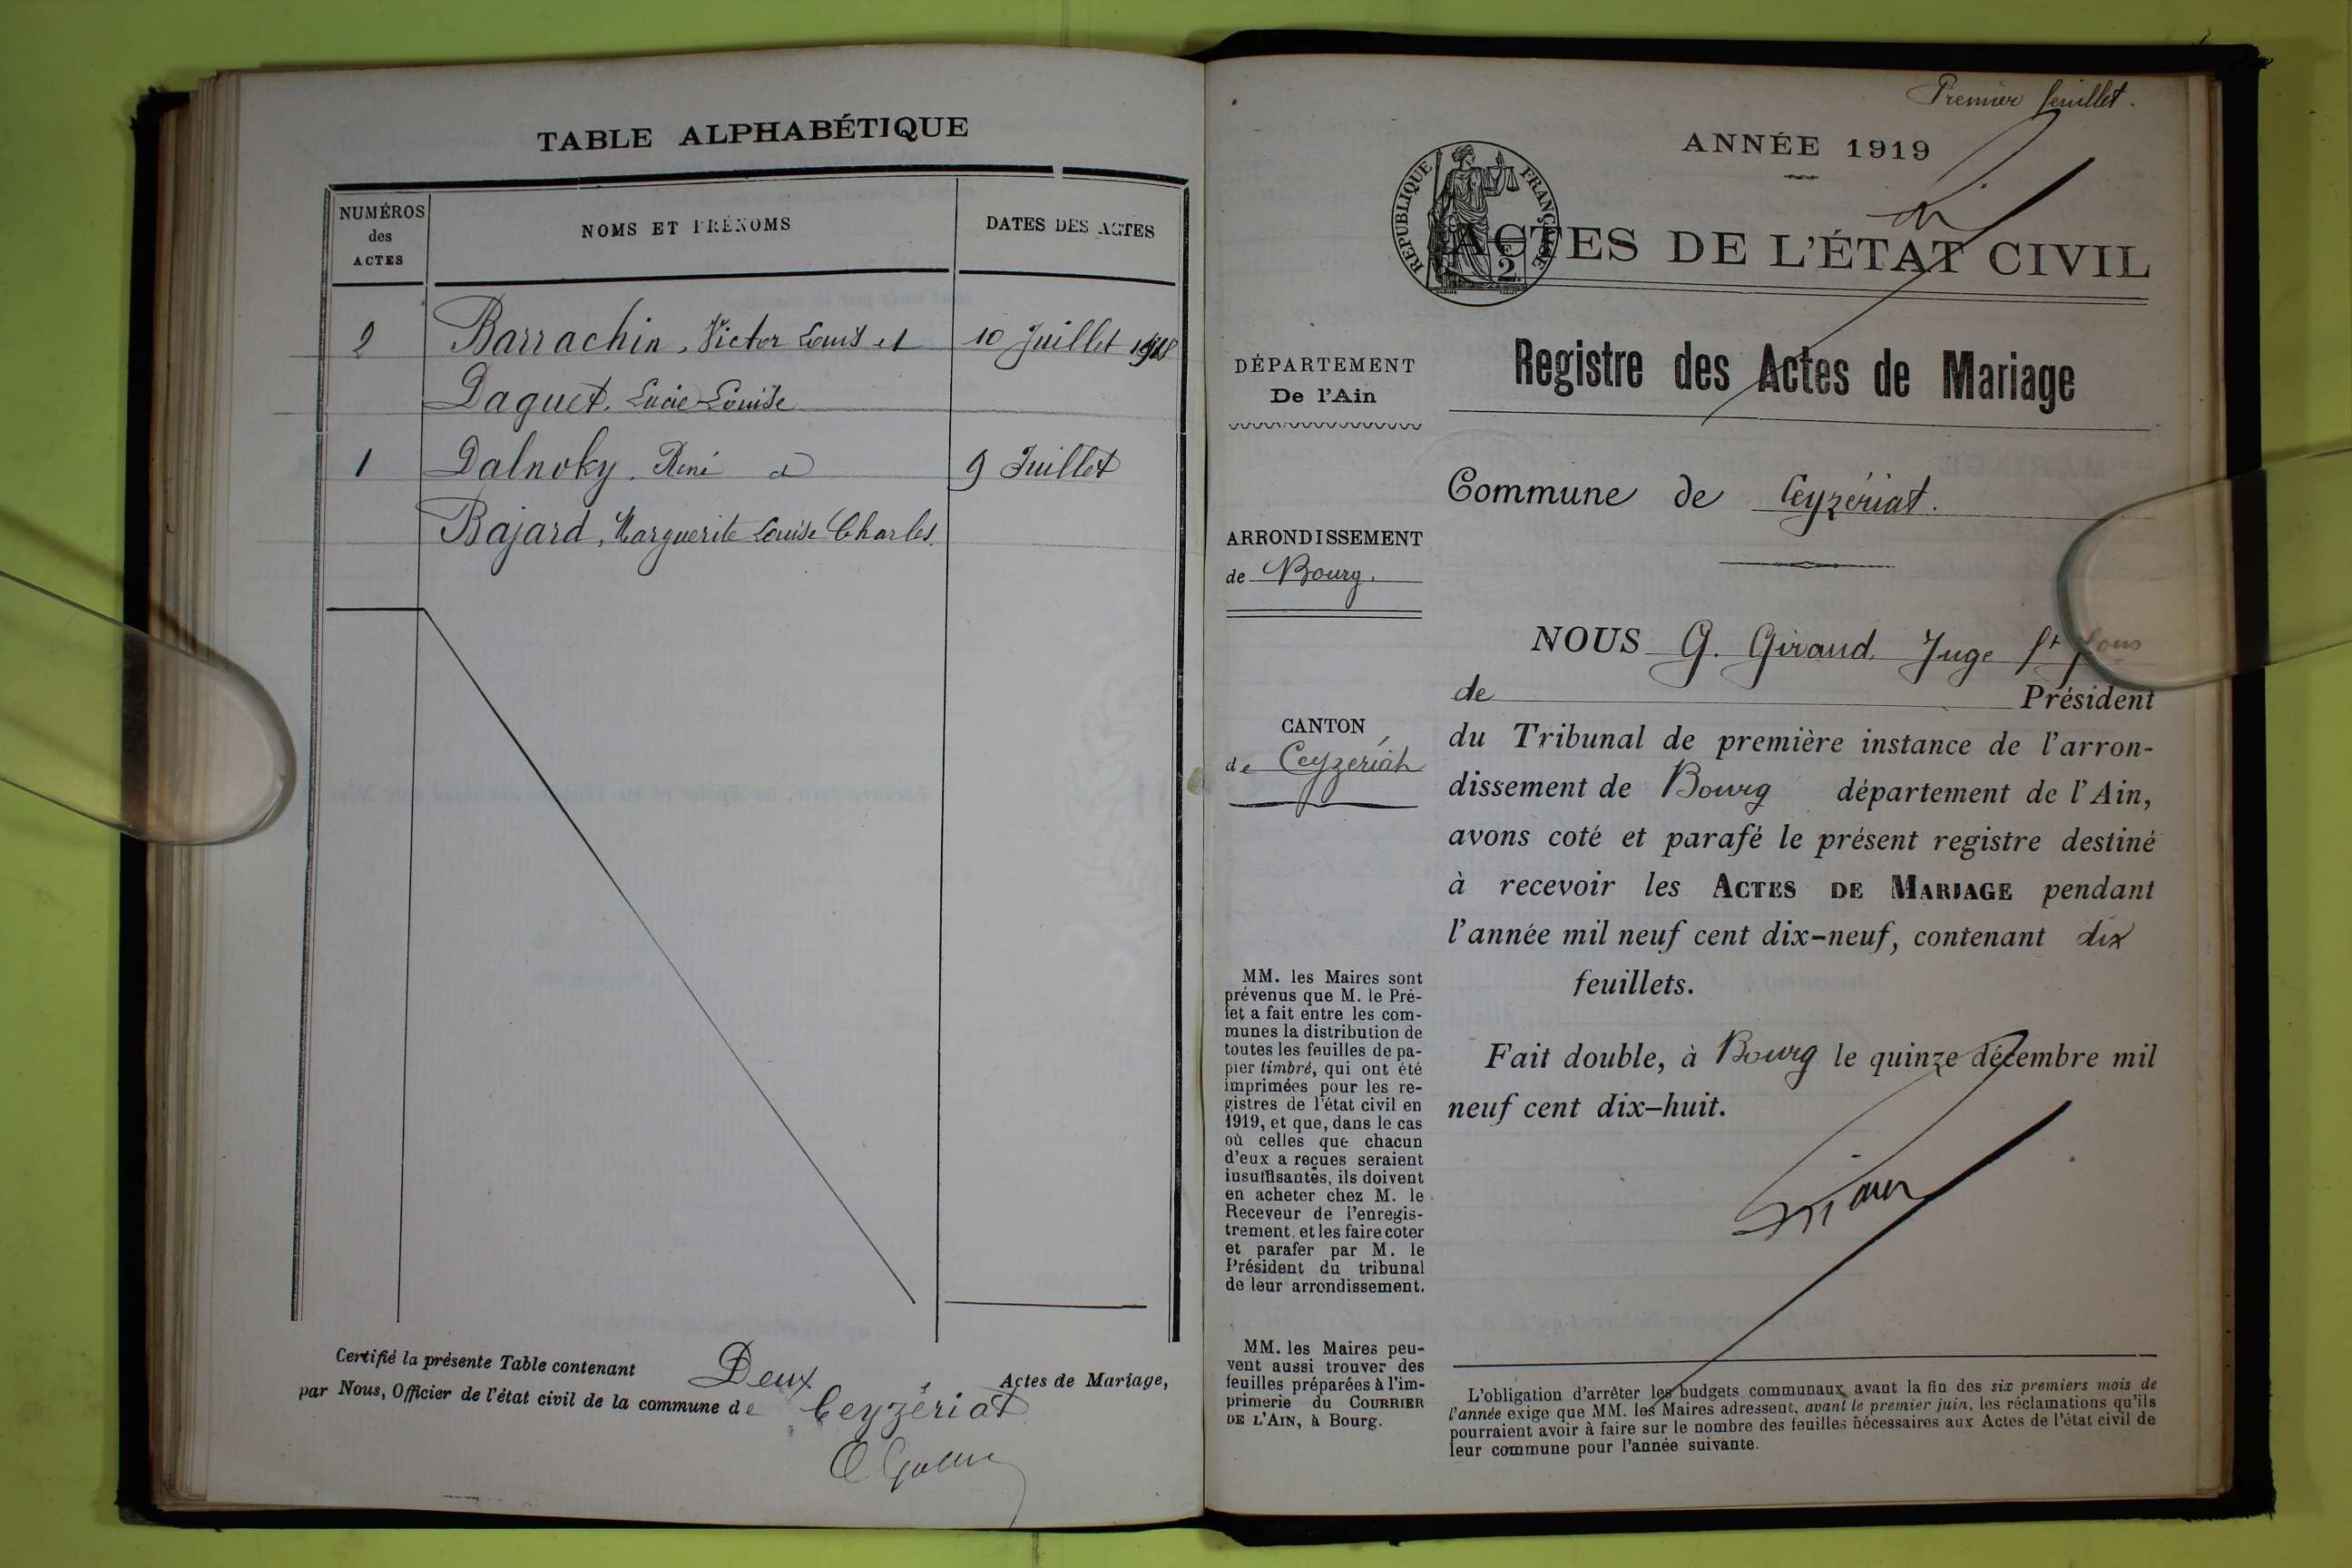 TABLE ALPHABÉTIQUE
NUMÉROS
des
ACTES
NOMS ET PRÉNOMS
DATES DES ACTES
2 Barrachin, Victor Louis et 10 Juillet 1918
Daguet, Lucie Louise
1 Dalnoky, René et 9 Juillet
Bajard, Marguerite Louise Charles
Certifié la présente Table contenant Deux Actes de Mariage,
par Nous, Officier de l'état civil de la commune de Ceyzériat
Premier feuillet.
ANNÉE 1919
RÉPUBLIQUE FRANÇAISE
2
ACTES DE L'ÉTAT CIVIL
DÉPARTEMENT
De l'Ain
ARRONDISSEMENT
de Bourg.
CANTON
de Ceyzériat
MM. les Maires sont
prévenus que M. le Pré-
fet a fait entre les com-
munes la distribution de
toutes les feuilles de pa-
pier timbré, qui ont été
imprimées pour les re-
gistres de l'état civil en
1919, et que, dans le cas
où celles que chacun
d'eux a reçues seraient
insuffisantes, ils doivent
en acheter chez M. le
Receveur de l'enregis-
trement, et les faire coter
et parafer par M. le
Président du tribunal
de leur arrondissement.
MM. les Maires peu-
vent aussi trouver des
feuilles préparées à l'im-
primerie du COURRIER
DE L'AIN, à Bourg.
Registre des Actes de Mariage
Commune de Ceyzériat.
NOUS G. Giraud, Juge
de Président
du Tribunal de première instance de l'arron-
dissement de Bourg département de l'Ain,
avons coté et parafé le présent registre destiné
à recevoir les ACTES DE MARIAGE pendant
l'année mil neuf cent dix-neuf, contenant dix
feuillets.
Fait double, à Bourg le quinze décembre mil
neuf cent dix-huit.
L'obligation d'arrêter les budgets communaux avant la fin des six premiers mois de
l'année exige que MM. les Maires adressent, avant le premier juin, les réclamations qu'ils
pourraient avoir à faire sur le nombre des feuilles nécessaires aux Actes de l'état civil de
leur commune pour l'année suivante.